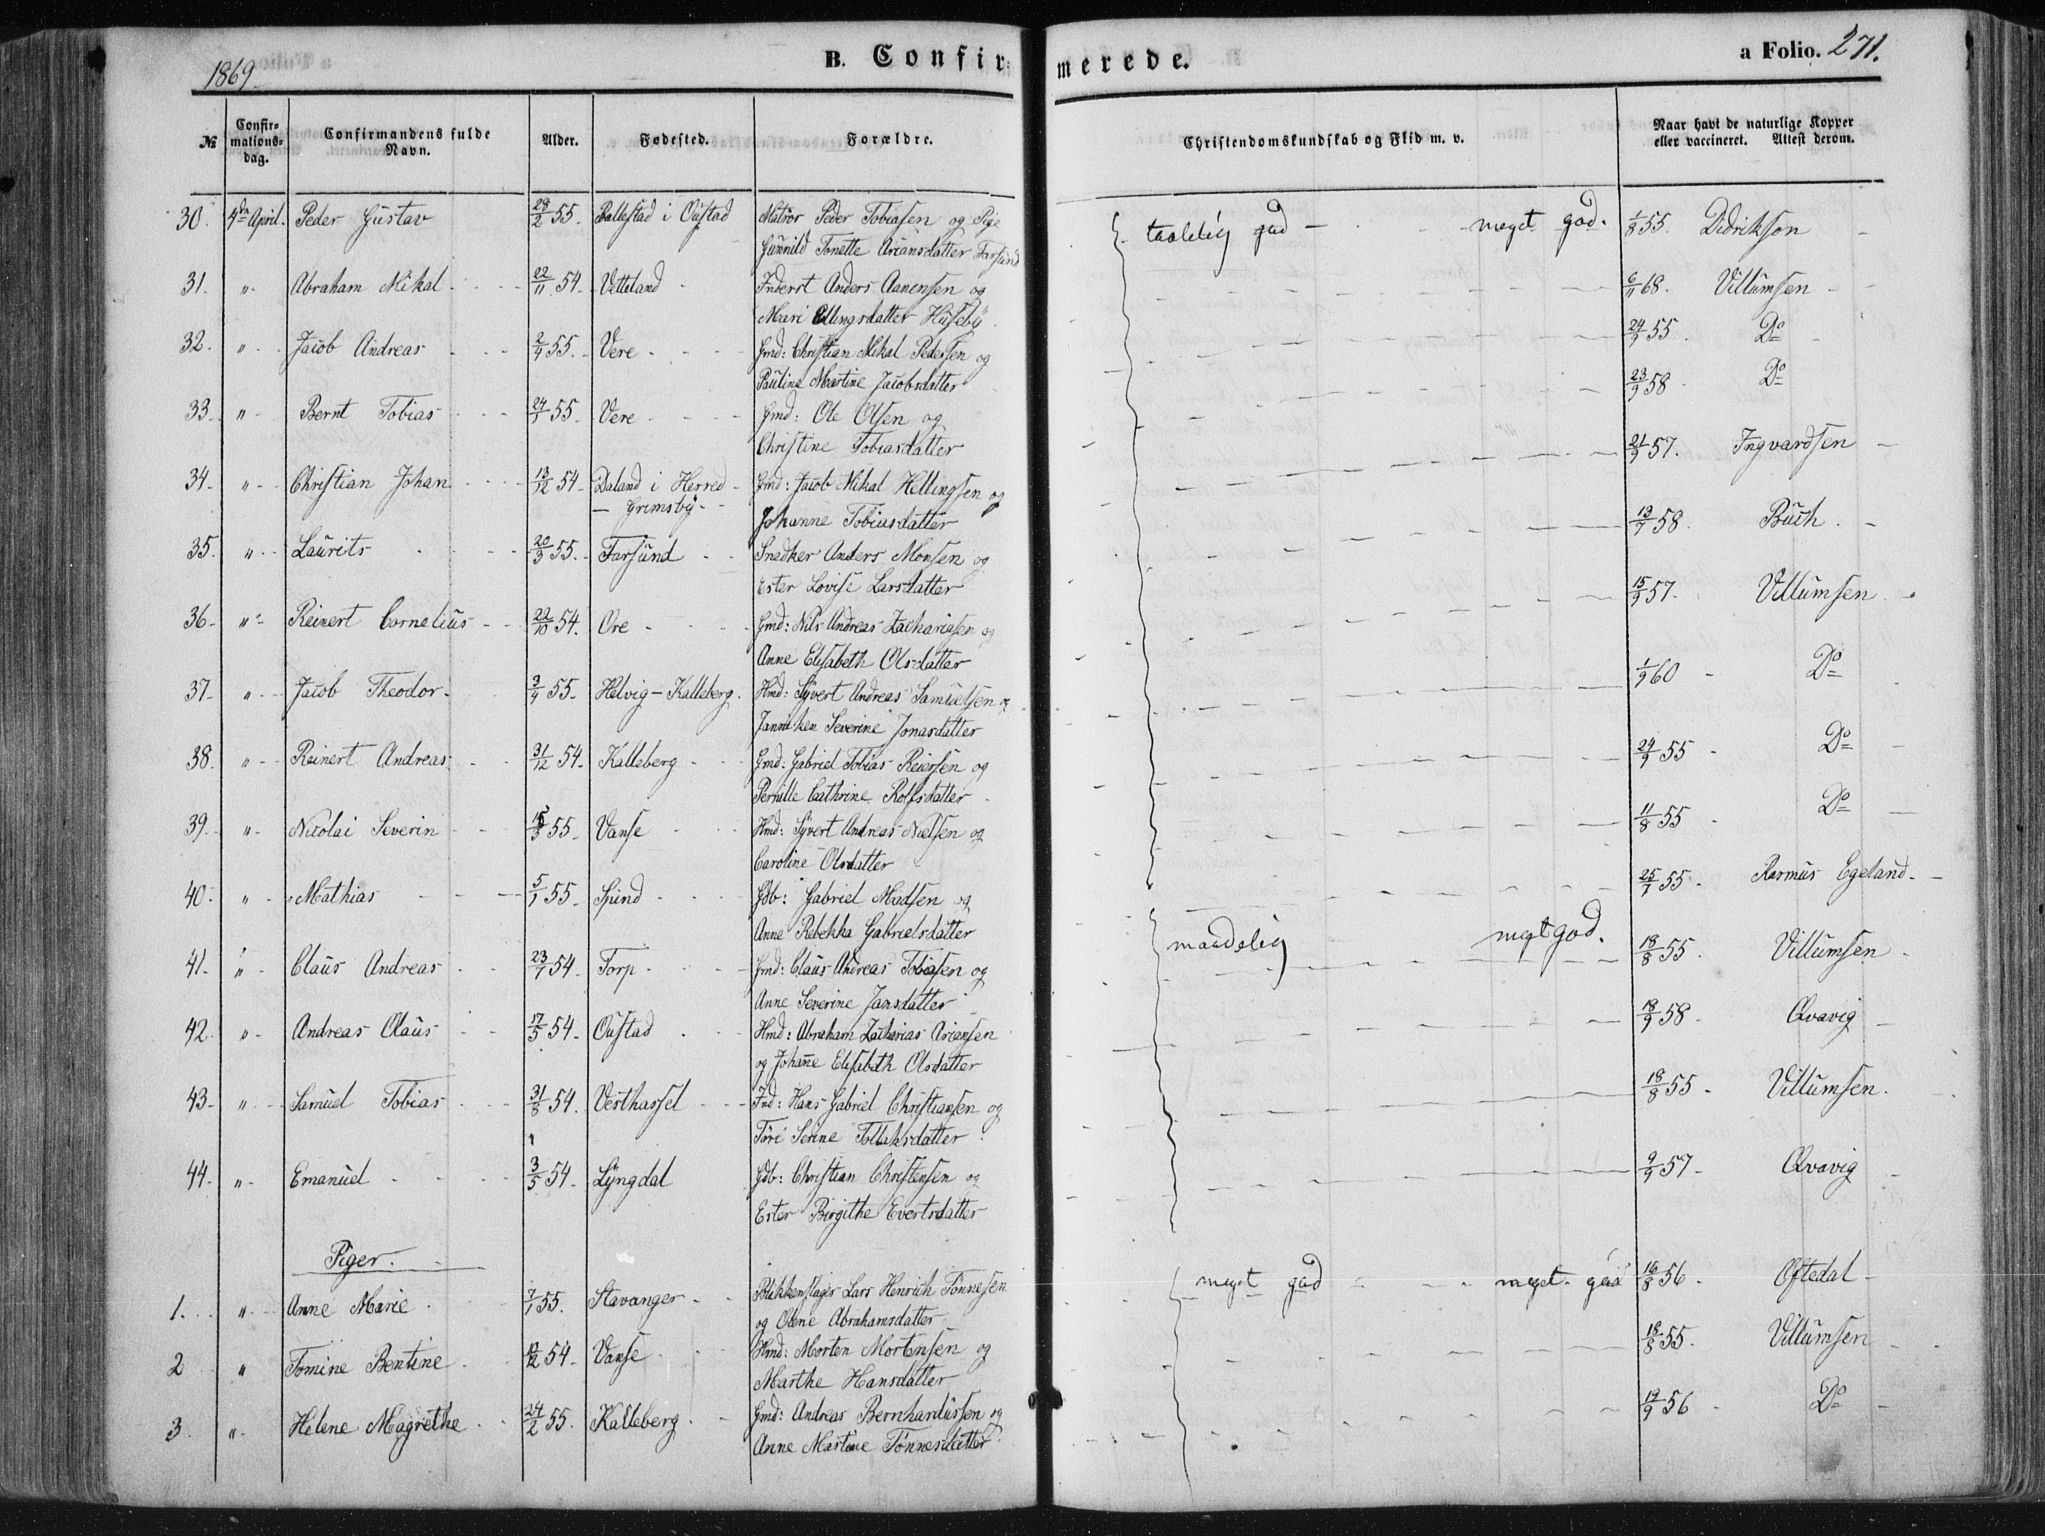 1869.
B. Confirmerede.
a Folio. 271.
№ Confirmationsdag. Confirmandens fulde Navn. Alder. Fødested. Forældre. Christendomskundskab og Flid m. v. Naar havt de naturlige Kopper eller vaccineret. Attest derom.
30. 4de April. Peder Gustav 28/2 55. Ballestad i Oustad Matros Peder Tobiasen og Pige taalelig god meget god. 1/8 55. Didrikson
Gunnild Tonette Ariansdatter Farsund
31. " Abraham Mikal 22/11 54. Vetteland Inderst Anders Aanensen og 6/11 68. Villumsen
Mari Ellingsdatter Huseby
32. " Jacob Andreas 2/4 55. Vere Gmd: Christian Mikal Pedersen og 24/9 55. Do
Pauline Martine Jacobsdatter
33. " Bernt Tobias 24/1 55. Vere Gmd: Ole Olsen og 23/9 58 Do
Christine Tobiasdatter
34. " Christian Johan 13/12 54. Daland i Herred Gmd: Jacob Mikal Hellingsen og 21/9 57. Ingvardsen
– Grimsby Johanne Tobiasdatter
35. " Laurits 20/3 55. Farsund Snedker Anders Monsen og 13/7 58. Buch
Ester Lovise Larsdatter
36. " Reinert Cornelius 22/10 54. Ore Gmd: Nils Andreas Zachariasen og 15/9 57. Villumsen
Anne Elisabeth Olsdatter
37. " Jacob Theodor 3/4 55. Helvig – Kalleberg. Hmd: Syvert Andreas Samuelsen og 1/9 60 Do
Janniken Severine Jonasdatter
38. " Reinert Andreas 31/12 54. Kalleberg Gmd: Gabriel Tobias Reiersen og 24/9 55 Do
Pernille Cathrine Rolfsdatter
39. " Nicolai Severin 55. Vanse Hmd: Syvert Andreas Nielsen og 11/8 55 Do
Caroline Olsdatter
40. " Mathias 5/1 55. Spind Gdb: Gabriel Madsen og 25/7 55 Rasmus Egeland
Anne Rebekka Gabrielsdatter
41. " Claus Andreas 23/1 54. Torp Gmd: Claus Andreas Tobiasen og maadelig meget god. 18/8 55 Villumsen
Anne Severine Jansdatter
42. " Andreas Olaus 17/5 54. Oustad Hmd: Abraham Zacharias Ariansen 18/9 58 Qvavig
og Johanne Elisabeth Olsdatter
43. " Samuel Tobias 31/8 54. Vesthassel Ind: Hans Gabriel Christiansen og 18/8 55 Villumsen.
Tori Serine Tollaksdatter
44. " Emanuel 3/5 54. Lyngdal Gdb: Christian Christensen og 9/9 57 Qvavig
Ester Birgithe Evertsdatter
Piger.
1. " Anne Marie 7/1 55. Stavanger Blikkenslager Lars Henrich Tønnesen meget god meget god 16/8 56 Oftedal
og Olene Abrahamsdatter
2 " Tomine Bentine 54. Vanse Hmd: Morten Mortensen og 18/8 55 Villumsen
Marthe Hansdatter
3. " Helene Magrethe 24/2 55. Kalleberg Gmd: Andreas Bernhardussen og 19/9 56 Do
Anne Martine Tønnesdatter